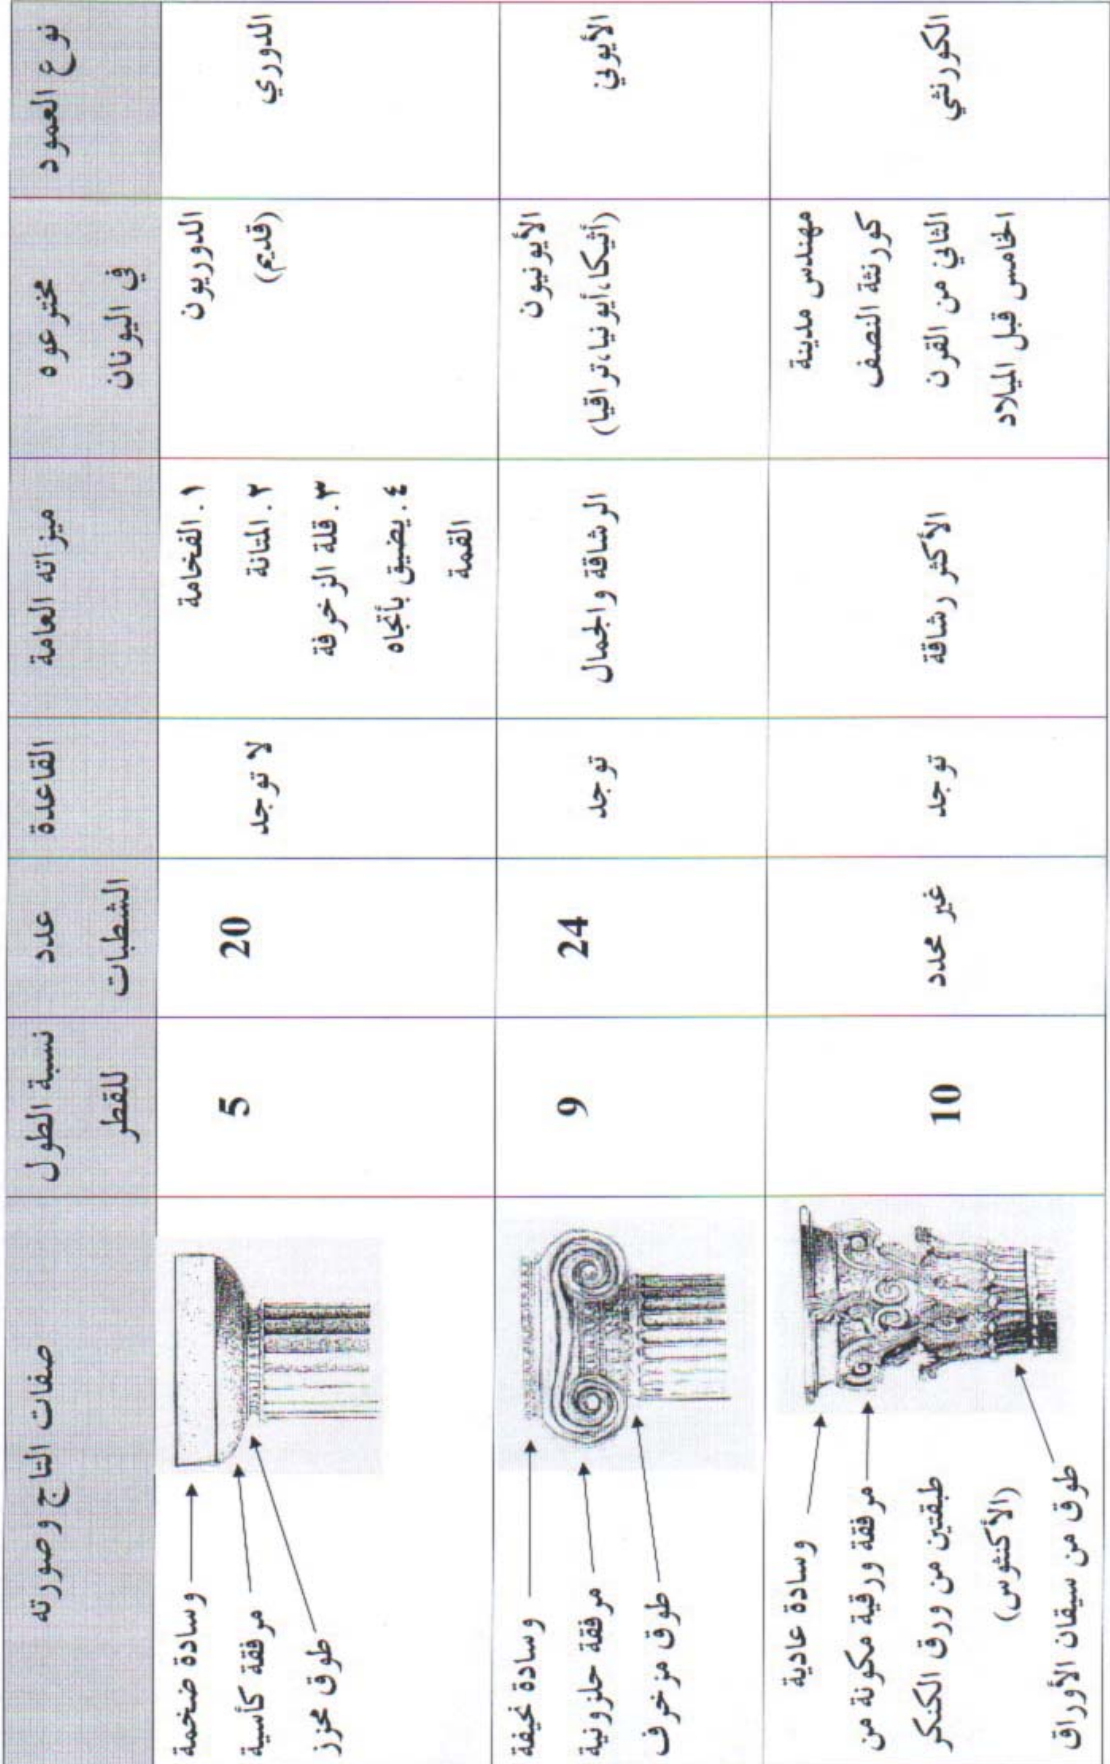 نوع العمود
مخترعوه
في اليونان
ميزاته العامة
القاعدة
عدد
الشطبات
نسبة الطول
للقطر
صفات التاج وصورته
الدوري
الدوريون
(قديم)
١. الفخامة
٢. المتانة
٣. قلة الزخرفة
٤. يضيق بأتجاه
القمة
لا توجد
20
5
وسادة ضخمة
مرفقة كأسية
طوق محزز
الأيوني
الأيونيون
(أتيكا،أيونيا،تراقيا)
الرشاقة والجمال
توجد
24
9
وسادة نحيفة
مرفقة حلزونية
طوق مزخرف
الكورنثي
مهندس مدينة
كورنثة النصف
الثاني من القرن
الخامس قبل الميلاد
الأكثر رشاقة
توجد
غير محدد
10
وسادة عادية
مرفقة ورقية مكونة من
طبقتين من ورق الكنكر
(الأكنثوس)
طوق من سيقان الأوراق